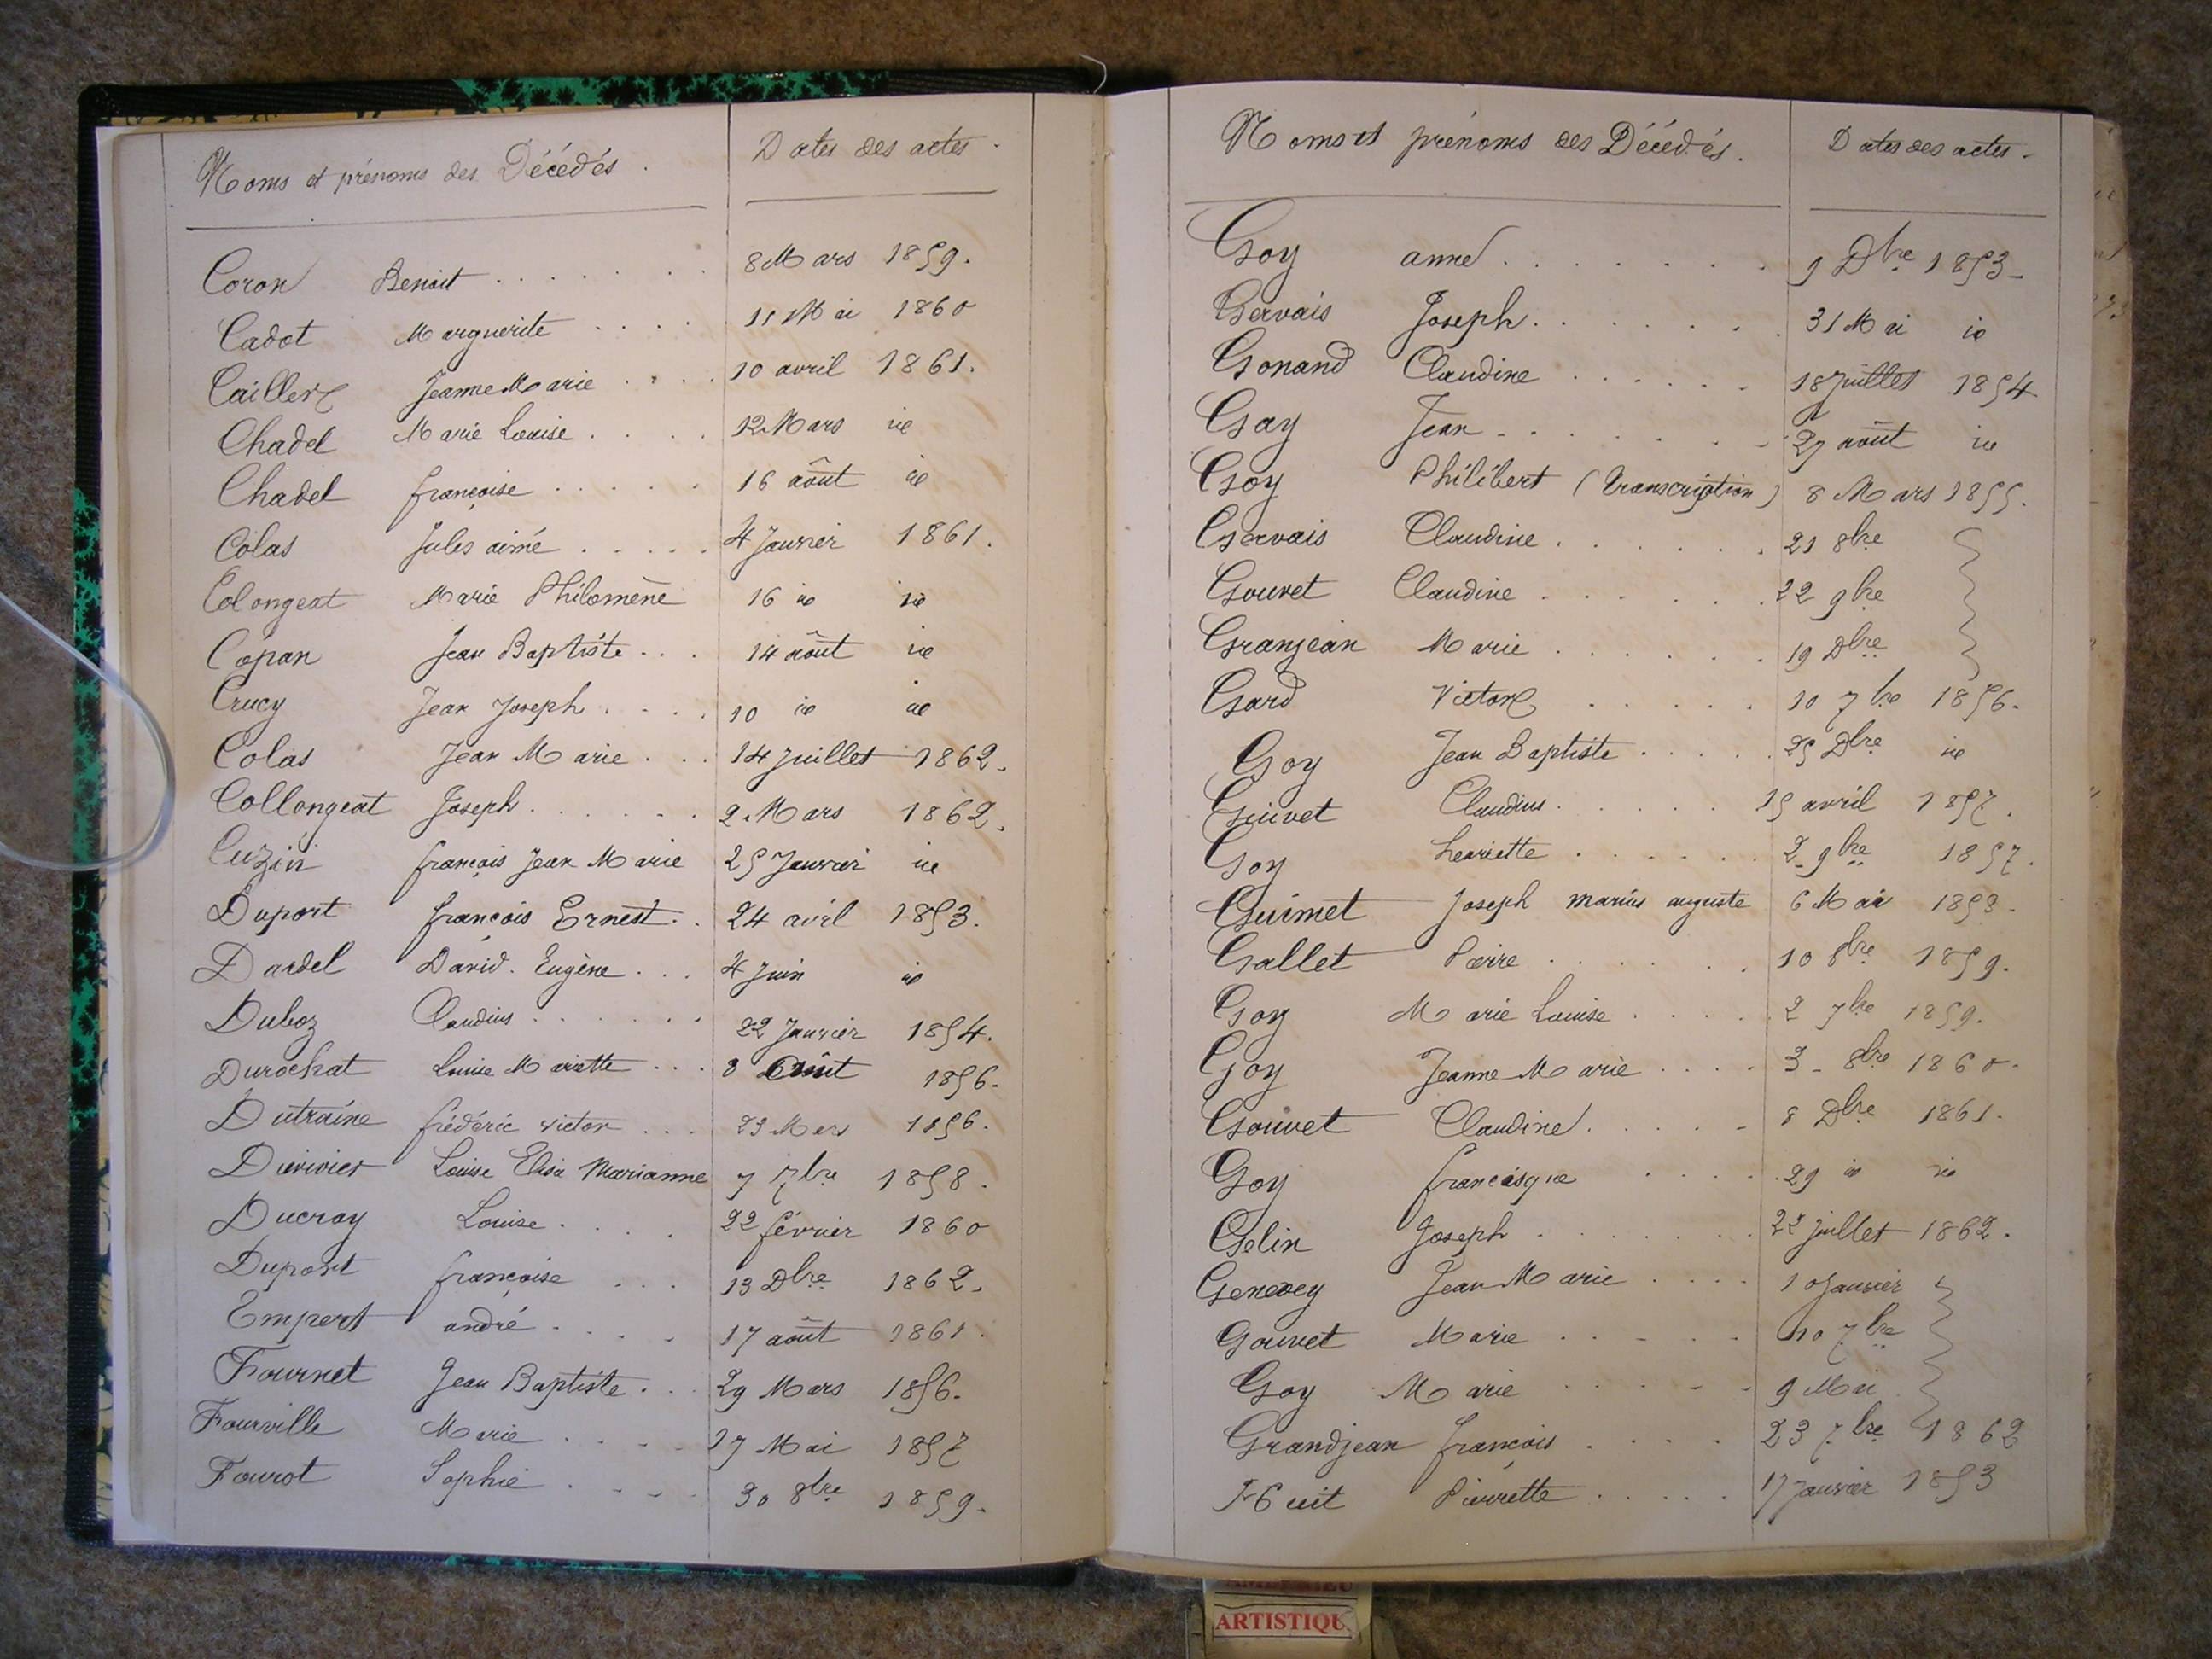 Noms et prénoms des Décédés.
Dates des actes.
Coron Benoit 8 Mars 1859.
Cadot Marguerite 11 Mai 1860
Cailler Jeanne Marie 10 avril 1861.
Chadel Marie Louise 12 Mars id
Chadel françoise 16 août id
Colas Jules aimé 4 Janvier 1861.
Colongeat Marie Philomène 16 id id
Copan Jean Baptiste 14 août id
Crucy Jean Joseph 10 id id
Colas Jean Marie 14 Juillet 1862.
Collongeat Joseph 2 Mars 1862.
Cuzin françois Jean Marie 25 Janvier id
Duport françois Ernest 24 avril 1853.
Dardel David. Eugène 4 Juin id
Duboz Claudius 22 Janvier 1854.
Durochat Louise Mariette 8 Août 1856.
Dutraine frédéric victor 23 Mars 1856.
Louise Elisa Marianne 7 7bre 1858.
Ducroy Louise 22 février 1860
Duport françoise 13 Dbre 1862.
Empert andré 17 août 1861.
Fournet Jean Baptiste 29 Mars 1856.
Fourville Marie 17 Mai 1857
Fourot Sophie 30 8bre 1859.
Noms et prénoms des Décédés.
Dates des actes.
Goy anne 9 Dbre 1853
Gervais Joseph 31 Mai id
Gonand Claudine 18 Juillet 1854
Gay Jean 27 août id
Goy Philibert (transcription) 8 Mars 1855.
Gervais Claudine 21 8bre
Gouvet Claudine 22 9bre
Granjean Marie 19 Dbre
Gard Victor 10 7bre 1856.
Goy Jean Baptiste 25 Dbre id
Guivet Claudius 15 avril 1857.
Goy henriette 2 9bre 1857.
Guimet Joseph marius auguste 6 Mai 1858.
Gallet Pierre 10 8bre 1859.
Goy Marie Louise 2 7bre 1859.
Goy Jeanne Marie 3 8bre 1860.
Gouvet Claudine 8 Dbre 1861.
Goy francisque 29 id id
Gelin Joseph juillet 1862.
Genevey Jean Marie 10 Janvier
Gouvet Marie 10 7bre
Goy Marie 9 Mai
Grandjean françois 23 7bre 1862
Huit Pierrette 17 Janvier 1853
ARTISTIQU